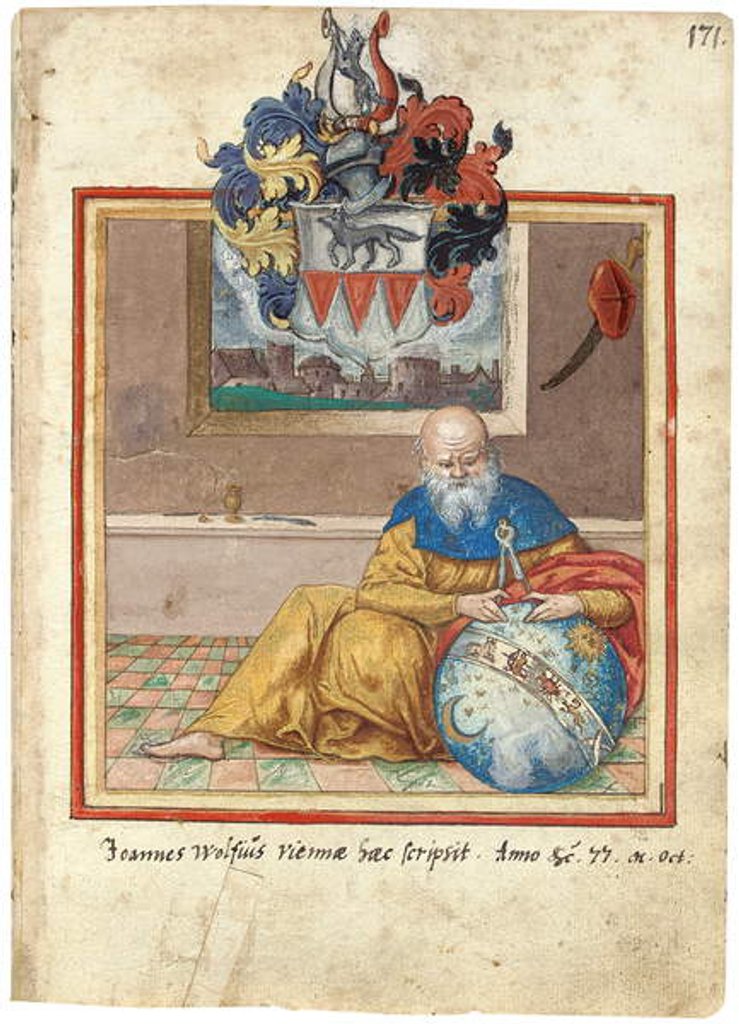 171.
Joannes Wolfius Viennæ hæc scripsit. Anno &c. 77. m. Oct: